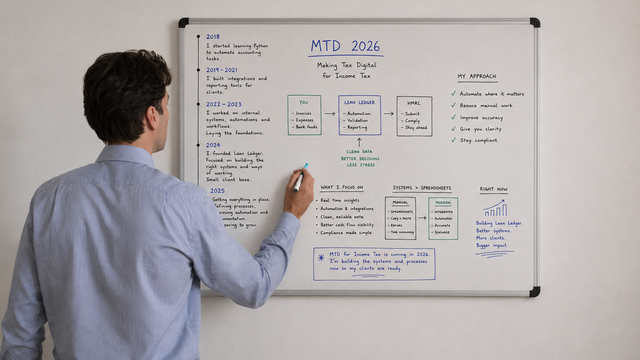 2018
I started learning Python
to automate accounting
tasks.
2019-2021
I built integrations and
reporting tools for
clients.
2022-2023
I worked on internal
systems, automations and
workflows.
Laying the foundations.
2024
I founded Lean Ledger.
Focused on building the
right systems and ways
of working.
Small client base.
2025
Getting everything in place.
processes,
automation and
to grow.
MTD 2026
Making Tax Digital
for Income Tax
YOU
- Invoices
- Expenses
- Bank feeds
LEAN LEDGER
- Automation
- Validation
- Reporting
HMRC
- Submit
- Comply
- Stay ahead
CLEAN DATA
BETTER DECISIONS
LESS STRESS
MY APPROACH
✓ Automate where it matters
✓ Reduce manual work
✓ Improve accuracy
✓ Give you clarity
✓ Stay compliant
WHAT I FOCUS ON
• Real time insights
• Automation & integrations
• Clean, reliable data
• Better cash flow visibility
• Compliance made simple
SYSTEMS > SPREADSHEETS
MANUAL
- Spreadsheets
- Copy + Paste
- Errors
- Time consuming
MODERN
- Integrated
- Automated
- Accurate
- Scalable
RIGHT NOW
Building Lean Ledger
Better systems.
More clients.
Bigger impact.
* MTD for Income Tax is coming in 2026.
I'm building the systems and processes
now so my clients are ready.